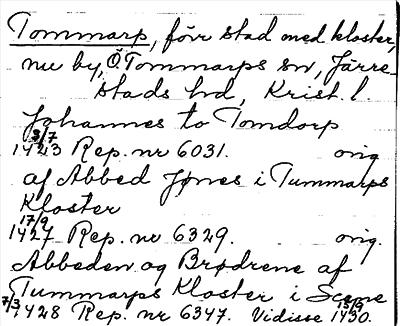 Tommarp, förr stad med kloster,
nu by, Ö. Tommarps sn, Järre-
stads hd, Krist. l.
Johannes to Tomdorp
3/7
1423 Rep. nr 6031. orig.
af Abbed Jønes i Tummarps
Kloster
17/9
1427 Rep. nr 6329. orig.
Abbeden og Brødrene af
Tummarps Kloster i Scone
7/3 1428 Rep. nr 6347. Vidisse 13/9 1430.